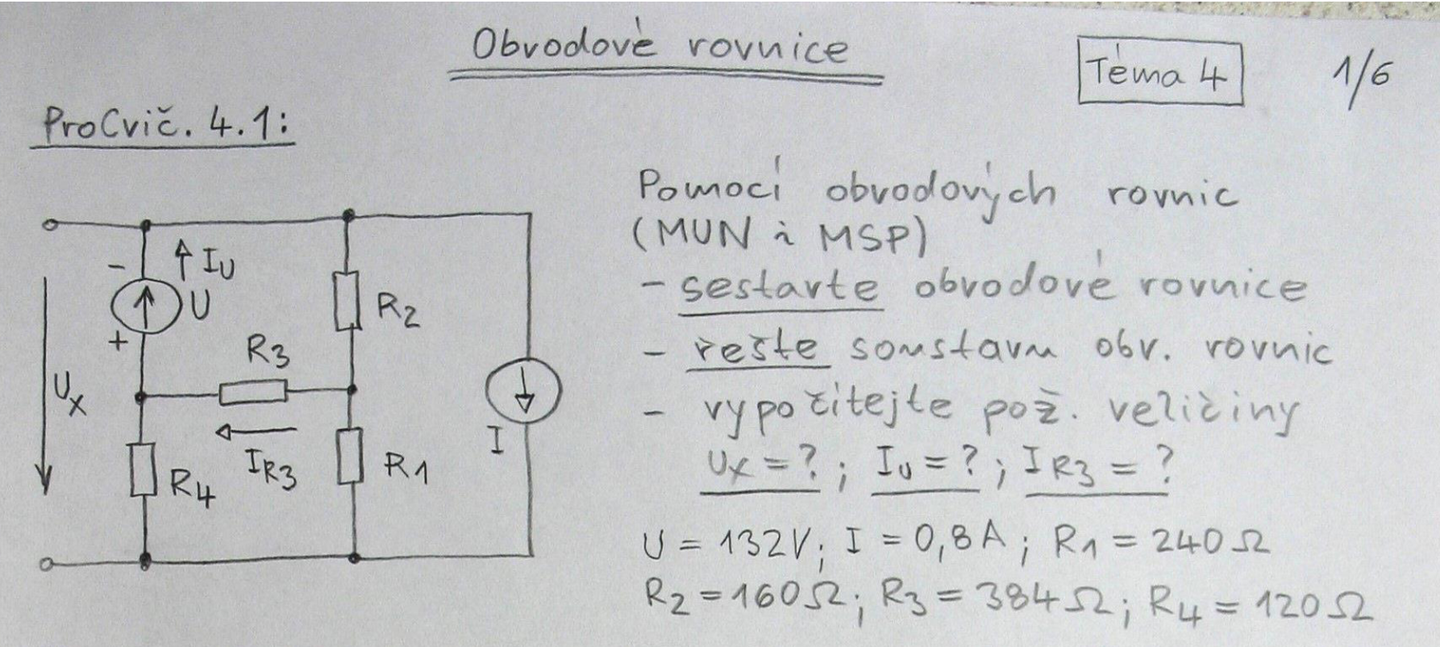 Obvodové rovnice
Téma 4
1/6
ProCvič. 4.1:
Pomocí obvodových rovnic
(MUN i MSP)
- sestavte obvodové rovnice
- řešte soustavu obv. rovnic
- vypočítejte pož. veličiny
Ux = ? ; IU = ? ; IR3 = ?
U = 132V; I = 0,8A; R1 = 240Ω
R2 = 160Ω; R3 = 384Ω; R4 = 120Ω
- IU
U
+
R2
R3
UX
IR3
R4
R1
I